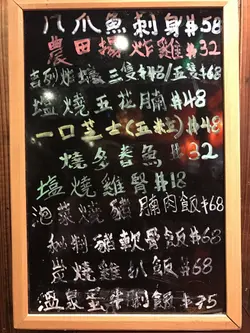 八爪魚刺身$58
農田場炸雞$32
吉列炸蠔三隻$48/五隻$68
塩燒五花腩$48
一口芝士(五粒)$48
燒多春魚$32
塩燒雞腎$18
泡菜燒豬腩肉飯$68
秘制豬軟骨飯$68
炭燒雞扒飯$68
溫泉蛋牛 飯$75